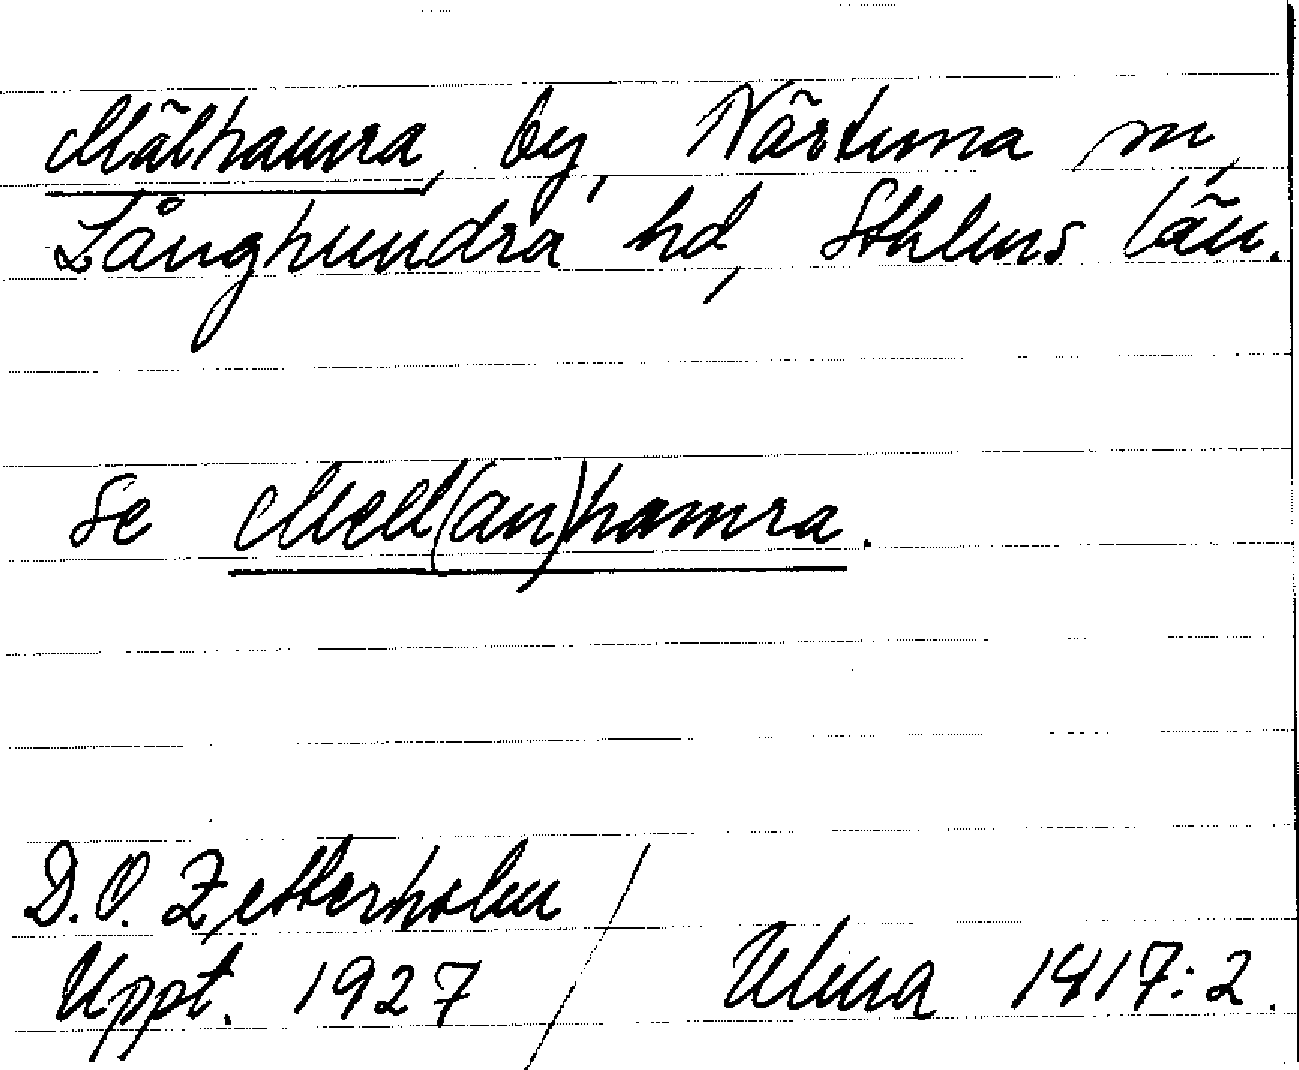 Mälhamra, by, Närtuna sn,
Långhundra hd, Sthlms län.
Se Mell(an)hamra.
D.O. Zetterholm
Uppt. 1927 / Ulma 1417:2.